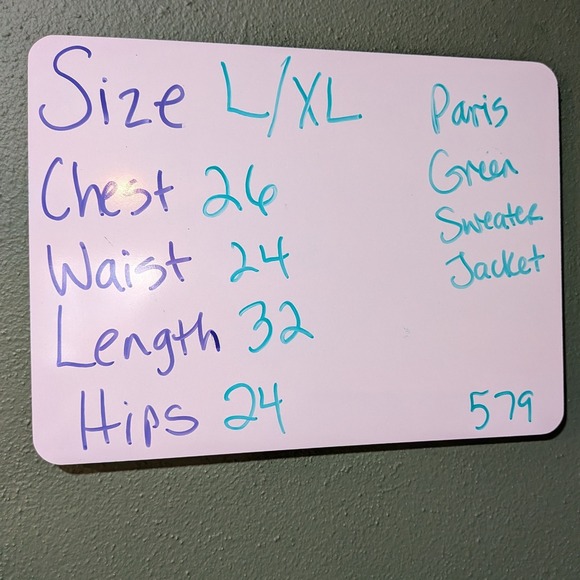 Size L/XL
Chest 26
Waist 24
Length 32
Hips 24
Paris
Green
Sweater
Jacket
579